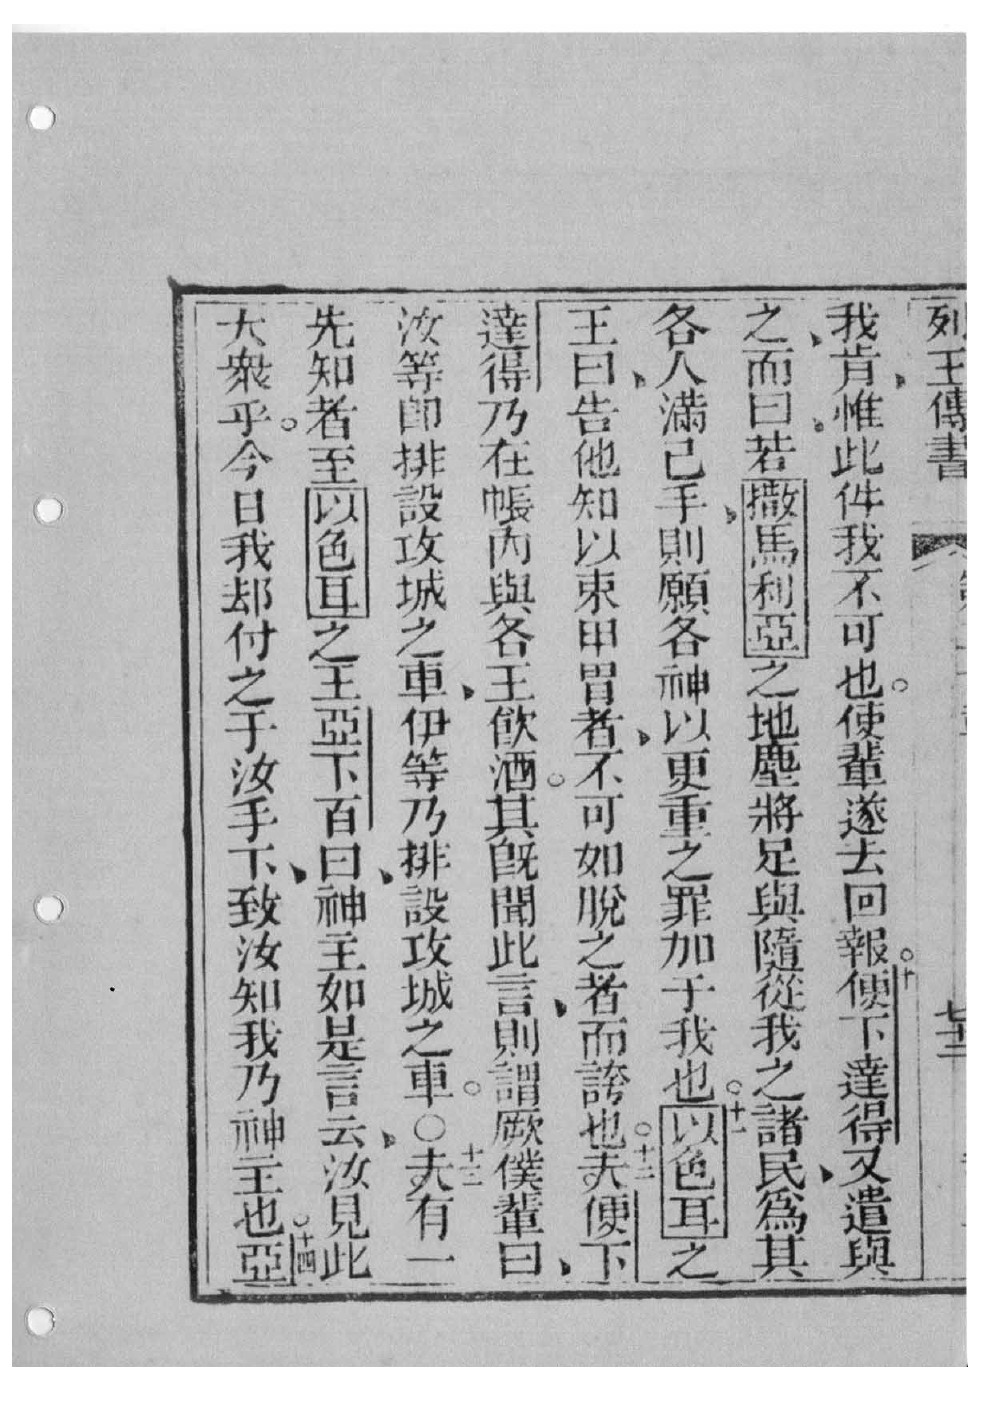 列王傳書
七十二
我肯惟此件我不可也。使輩遂去回報。十便下達得又遣與
之而曰若撒馬利亞之地塵將足與隨從我之諸民爲其
各人滿已手則願各神以更重之罪加于我也。十一以色耳之
王曰告他知以束甲冑者不可如脫之者而誇也。十二夫便下
達得乃在帳內與各王飲酒。其既聞此言則謂厥僕輩曰
汝等卽排設攻城之車伊等乃排設攻城之車。○十三夫有一
先知者至以色耳之王亞下百曰神主如是言云汝見此
大衆乎。今日我却付之于汝手下致汝知我乃神主也。十四亞